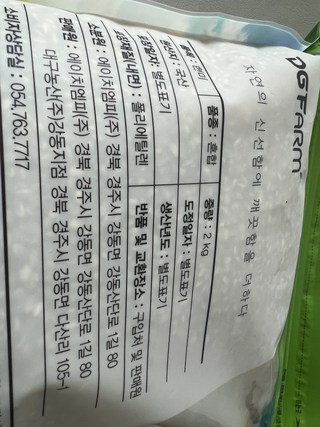 GFARM
자연의 신선함에 깨끗함을 더하다
품종 : 혼합
중량 : 2 kg
원산지 : 국산
도정일자 : 별도표기
포장일자 : 별도표기
생산년도 : 별도표기
포장재질(내면) : 폴리에틸렌
반품 및 교환장소 : 구입처 및 판매원
소분원 : 에이치엠피(주) 경북 경주시 강동면 강동산단로 1길 80
판매원 : 에이치엠피(주) 경북 경주시 강동면 강동산단로 1길 80
대구농산(주)강동지점 경북 경주시 강동면 다산리 105-1
소비자상담실 : 054.763.7717